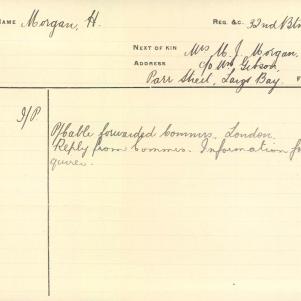 NAME Morgan, H. REG. &C. 32nd Btn
NEXT OF KIN Mrs M. J. Morgan,
ADDRESS c/o Mrs Gibson
Parr Street, Largs Bay. F
I/P
P/Cable forwarded Commrs. London.
Reply from Commrs. Information fo
quires.